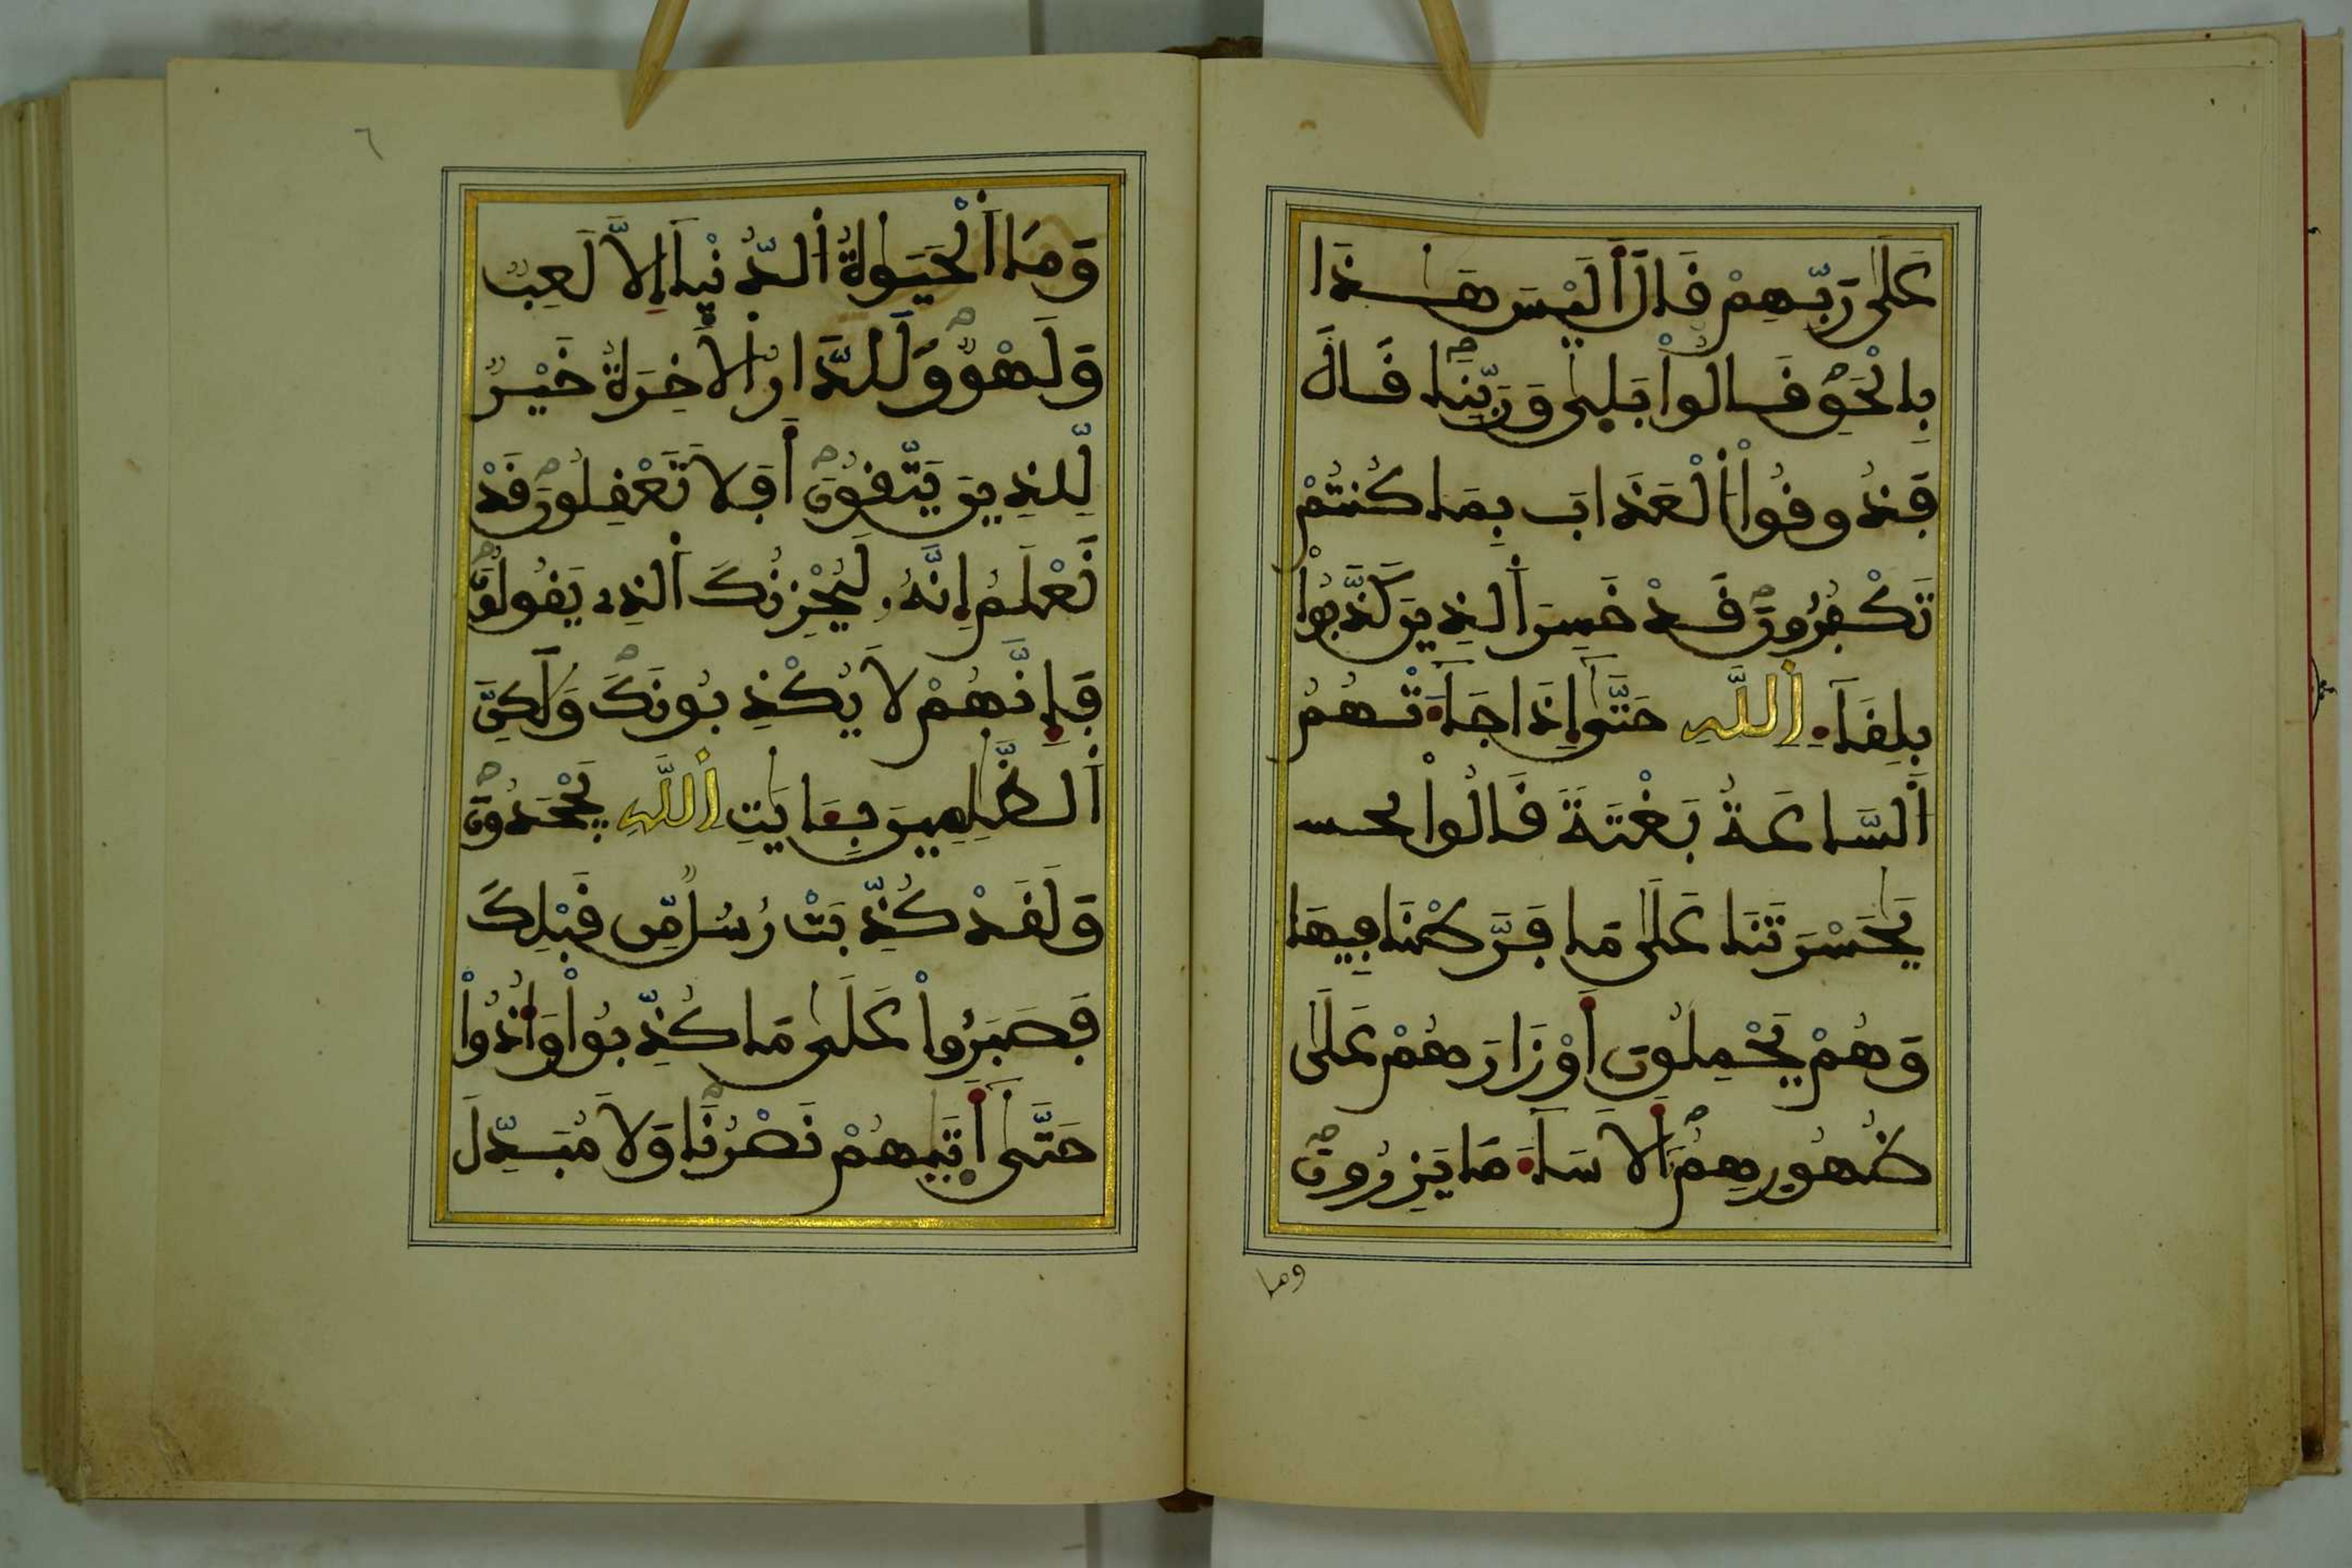 عَلَىٰ رَبِّهِمْ قَالَ أَلَيْسَ هَـٰذَا
بِالْحَقِّ قَالُواْ بَلَىٰ وَرَبِّنَا قَالَ
فَذُوقُواْ الْعَذَابَ بِمَا كُنتُمْ
تَكْفُرُونَ قَدْ خَسِرَ الذِينَ كَذَّبُواْ
بِلِقَآءِ اللَّهِ حَتَّىٰ إِذَا جَآءَتْهُمُ
السَّاعَةُ بَغْتَةً قَالُواْ يحس
يَٰحَسْرَتَنَا عَلَىٰ مَا فَرَّطْنَا فِيهَا
وَهُمْ يَحْمِلُونَ أَوْزَارَهُمْ عَلَىٰ
ظُهُورِهِمُ أَلَا سَآءَ مَا يَزِرُونَ
وما
٦
وَمَا الْحَيَوٰةُ الدُّنْيَآ إِلَّا لَعِبٌ
وَلَهْوٌ وَلَلدَّارُ الَاخِرَةُ خَيْرٌ
لِّلذِينَ يَتَّقُونَ أَفَلَا تَعْقِلُونَ قَدْ
نَعْلَمُ إِنَّهُ لَيُحْزِنُكَ الذِے يَقُولُونَ
فَإِنَّهُمْ لَا يُكْذِبُونَكَ وَلَٰكِنَّ
الظَّٰلِمِينَ بِـَٔايَٰتِ اللَّهِ يَجْحَدُونَ
وَلَقَدْ كُذِّبَتْ رُسُلٌ مِّن قَبْلِكَ
فَصَبَرُواْ عَلَىٰ مَا كُذِّبُواْ وَأُوذُواْ
حَتَّىٰٓ أَتَىٰهُمْ نَصْرُنَا وَلَا مُبَدِّلَ